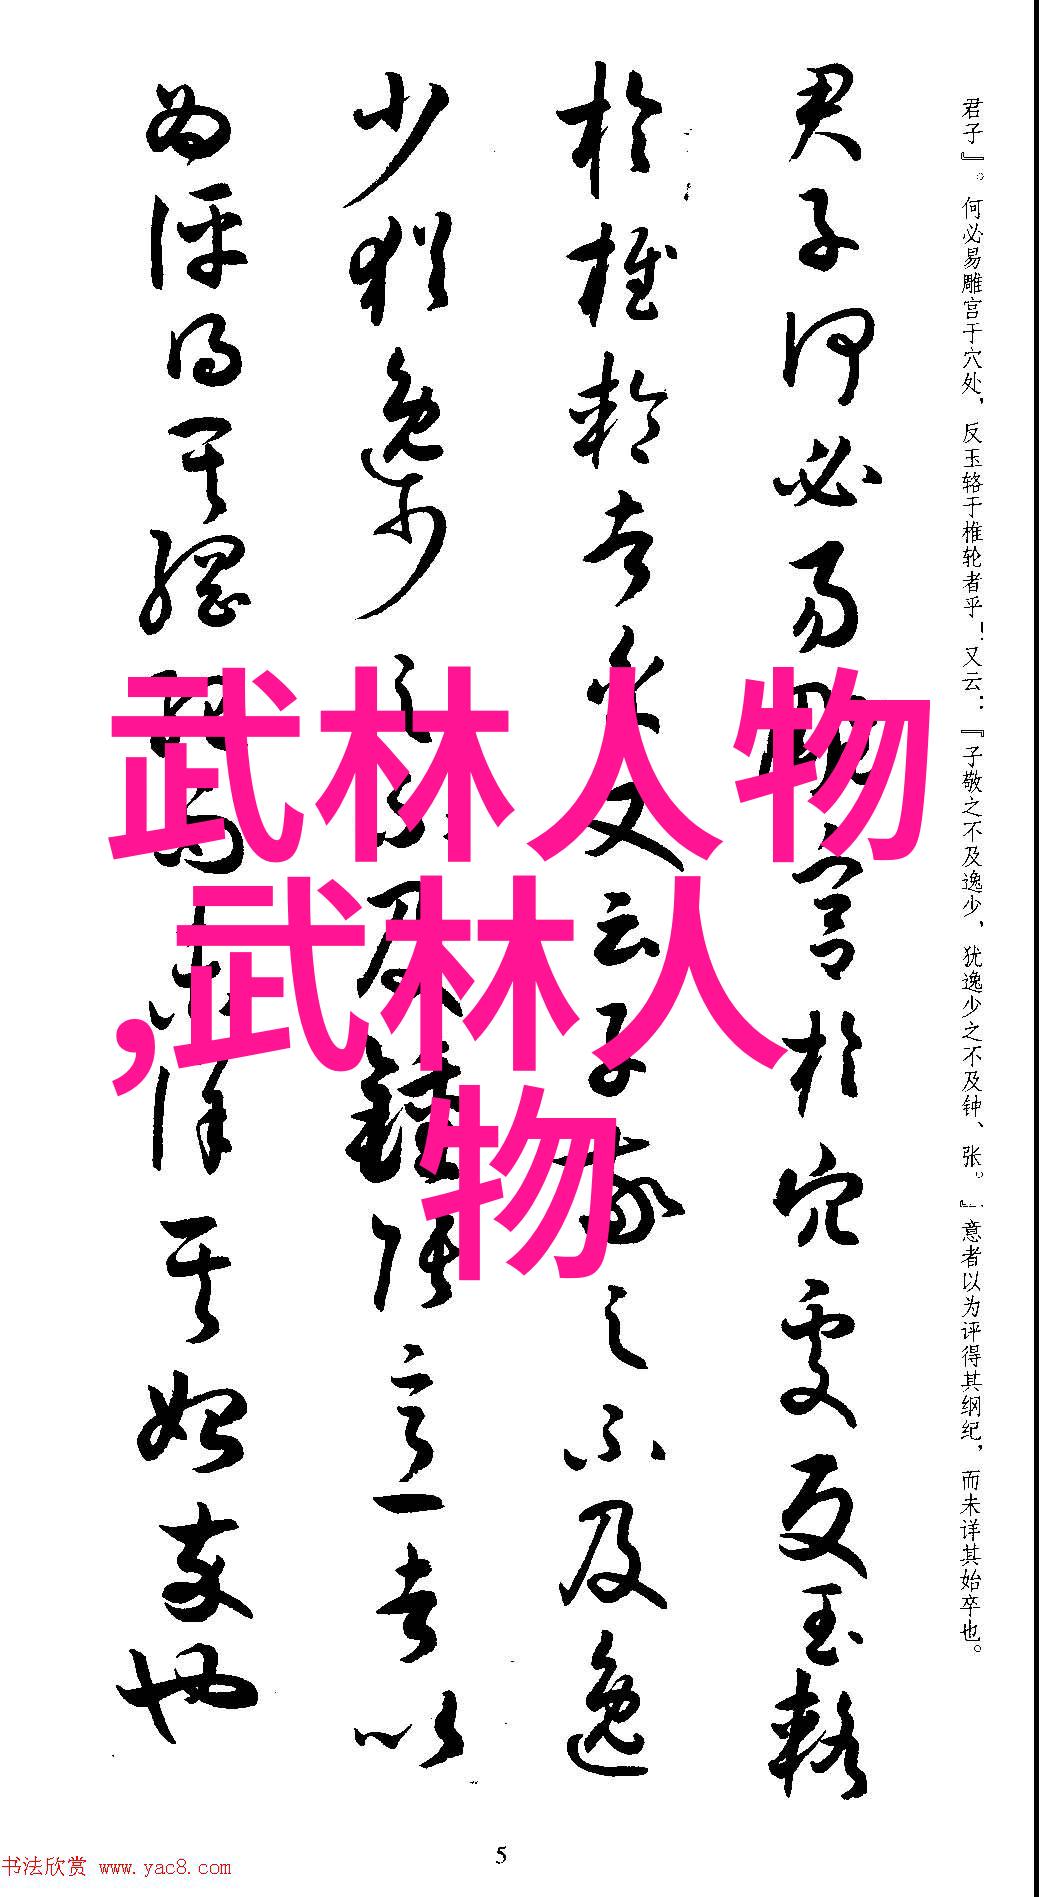 君子』。何必易雕宫于穴处，反玉辂于椎轮者乎！又云：『子敬之不及逸少，犹逸少之不及钟、张。』意者以为评得其纲纪，而未详其始卒也。
君子何必易雕宫於穴處反玉輅
於椎輪者乎又云子敬之不及逸
少猶逸少之不及鍾張意者以
為評得其綱紀而未詳其始卒也
武林人物
,武林人
物
5
书法欣赏 www.yac8.com